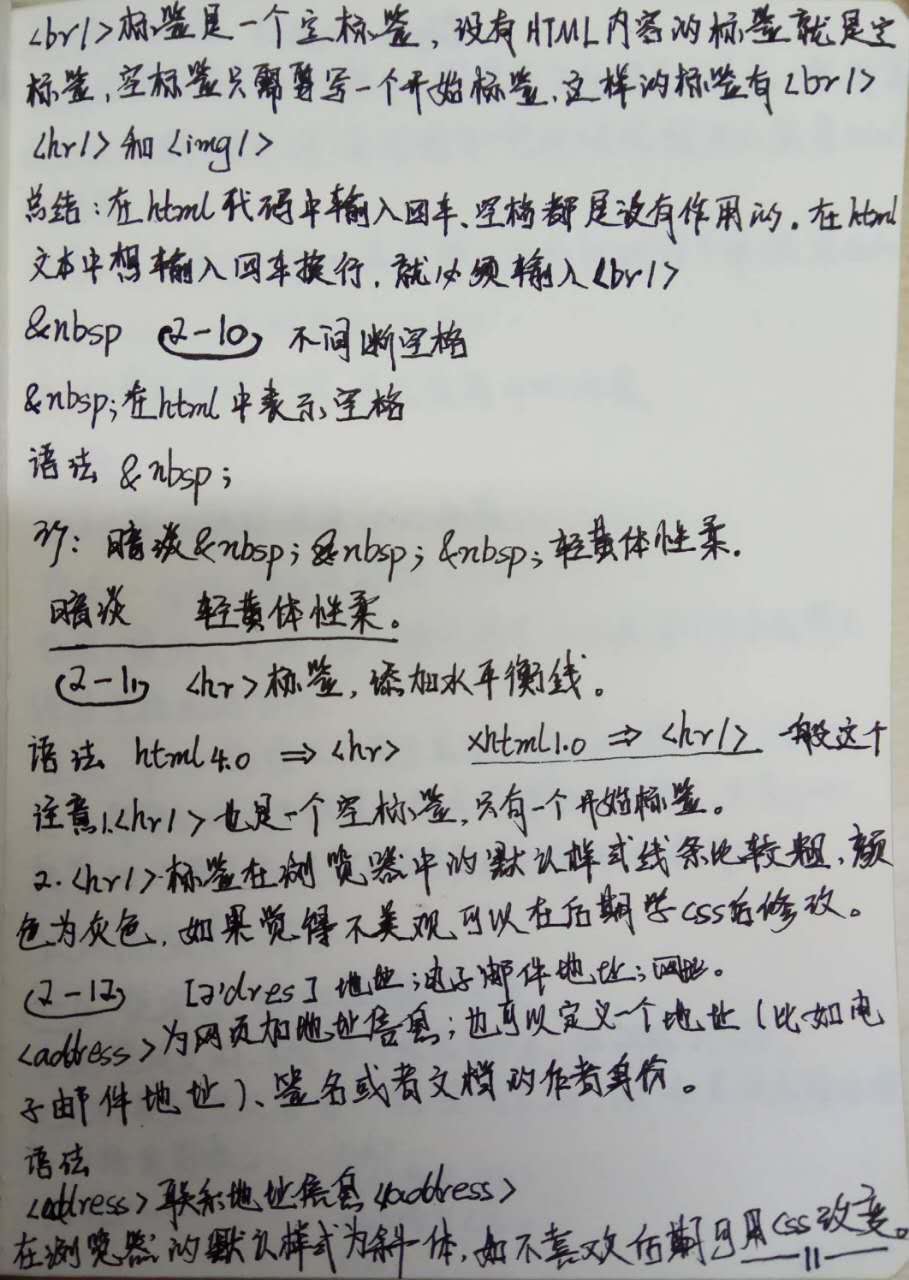 <br/>标签是一个空标签，没有HTML内容的标签就是空
标签，空标签只需要写一个开始标签，这样的标签有<br/>
<hr/>和<img/>
总结：在html代码中输入回车、空格都是没有作用的。在html
文本中想输入回车换行，就必须输入<br/>
&nbsp (2-10) 不间断空格
&nbsp;在html中表示空格
语法 &nbsp;
例：暗淡&nbsp;&nbsp;&nbsp;轻黄体性柔.
暗淡 轻黄体性柔。
(2-11) <hr>标签，添加水平衡线。
语法 html4.0 ⇒ <hr> xhtml1.0 ⇒ <hr/> 一般这个
注意1.<hr/>也是一个空标签，只有一个开始标签。
2.<hr/>标签在浏览器中的默认样式线条比较粗，颜
色为灰色，如果觉得不美观可以在后期学css后修改。
(2-12) [ə'dres] 地址；电子邮件地址；网址。
<address>为网页加地址信息；也可以定义一个地址（比如电
子邮件地址）、签名或者文档的作者身份。
语法
<address>联系地址信息</address>
在浏览器的默认样式为斜体，如不喜欢后期可用css改变。